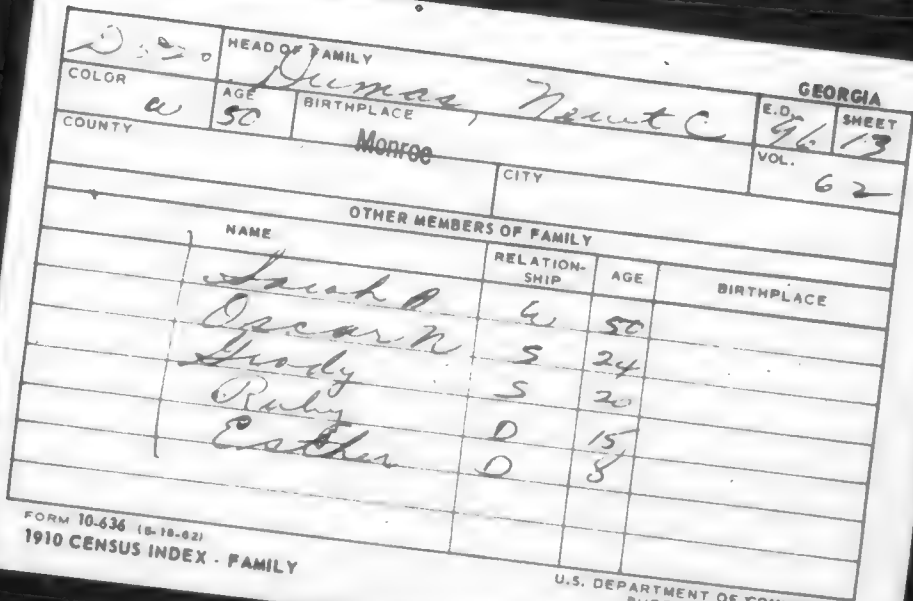 GEORGIA
D 520 HEAD OF FAMILY Dumas, Newt C E.D. 96 SHEET 13
COLOR W AGE 50 BIRTHPLACE VOL. 62
COUNTY Monroe CITY
OTHER MEMBERS OF FAMILY
NAME RELATION-SHIP AGE BIRTHPLACE
Sarah A W 50
Oscar N S 24
Grady S 20
Ruby D 15
Esther D 8
FORM 10-636 (8-18-62)
1910 CENSUS INDEX - FAMILY
U.S. DEPARTMENT OF